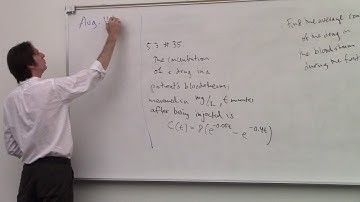 Avg.
5.7 #35
The concentration
of a drug in a
patient's bloodstream,
measured in mg/L, t minutes
after being injected is
C(t) = 8(e^-0.05t - e^-0.4t)
Find the average con
of the drug in
the bloodstream
during the first